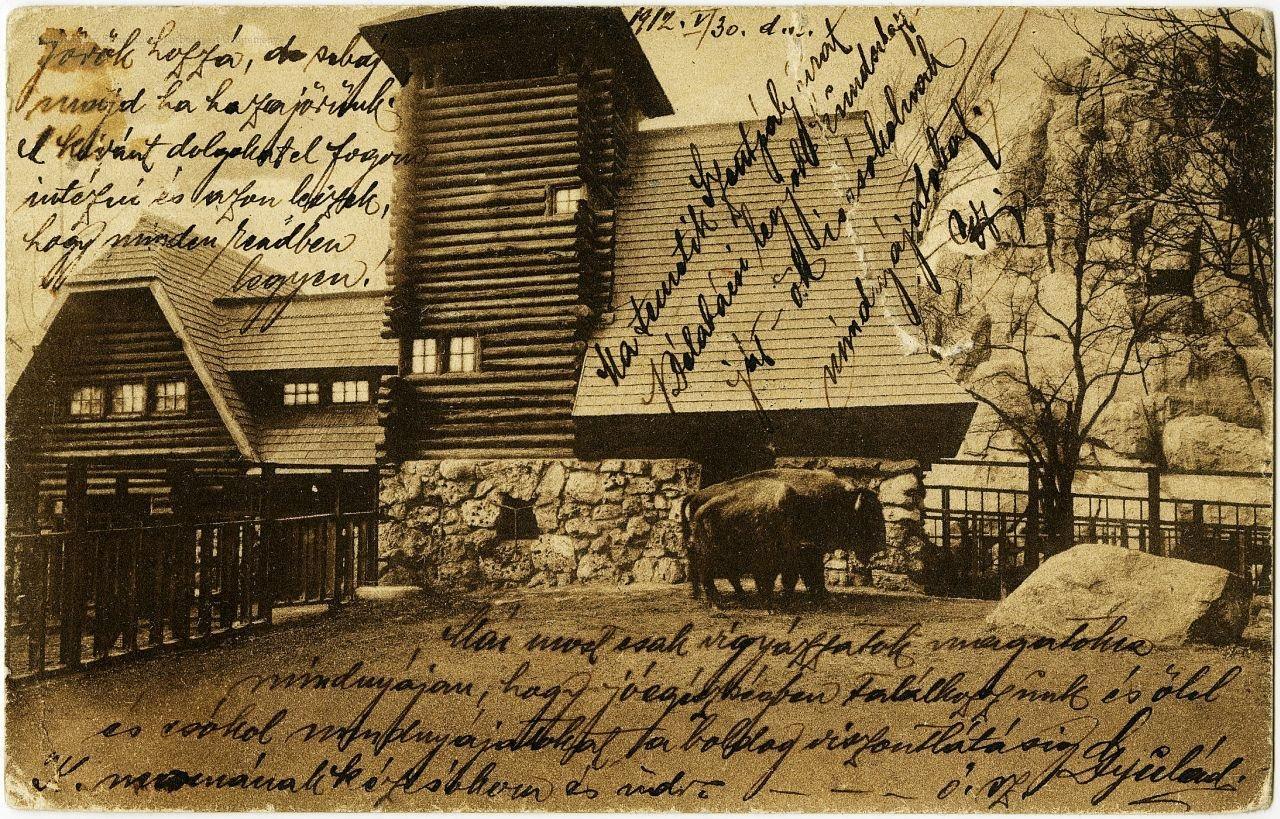 1912. V/30. d.
hozzá, de sebaj
majd ha hazajövünk
A kívánt dolgokat el fogom
intézni és azon leszek,
hogy minden rendben
legyen!
Ma temetik Szentpályinét
legjobb
ők is csókolnak
mindnyájatokat.
Már most csak vigyázzatok magatokra
mindnyájan, hogy jóegészségben találkozzunk és ölel
és csókol mindnyájatokat a boldog viszontlátásig
kézcsókom és üdv. ő. sz. Gyulád.